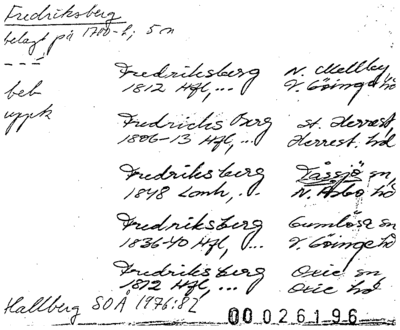 Fredriksberg
belagt på 1700-t; 5 n
Fredriksberg N. Mellby
1812 Hfl,... V. Göinge hd
beb
uppk
Fredrichs Berg St. Herrest.
1806-13 Hfl,... Herrest. hd
Fredriksberg Tåssjö sn,
1848 Lonh,... N. Åsbo hd
Fredriksberg Gumlösa sn
1836-40 Hfl,... V. Göinge hd
Fredriksberg Oxie sn
1812 Hfl,... Oxie hd
Hallberg SOÅ 1976:82
00026196